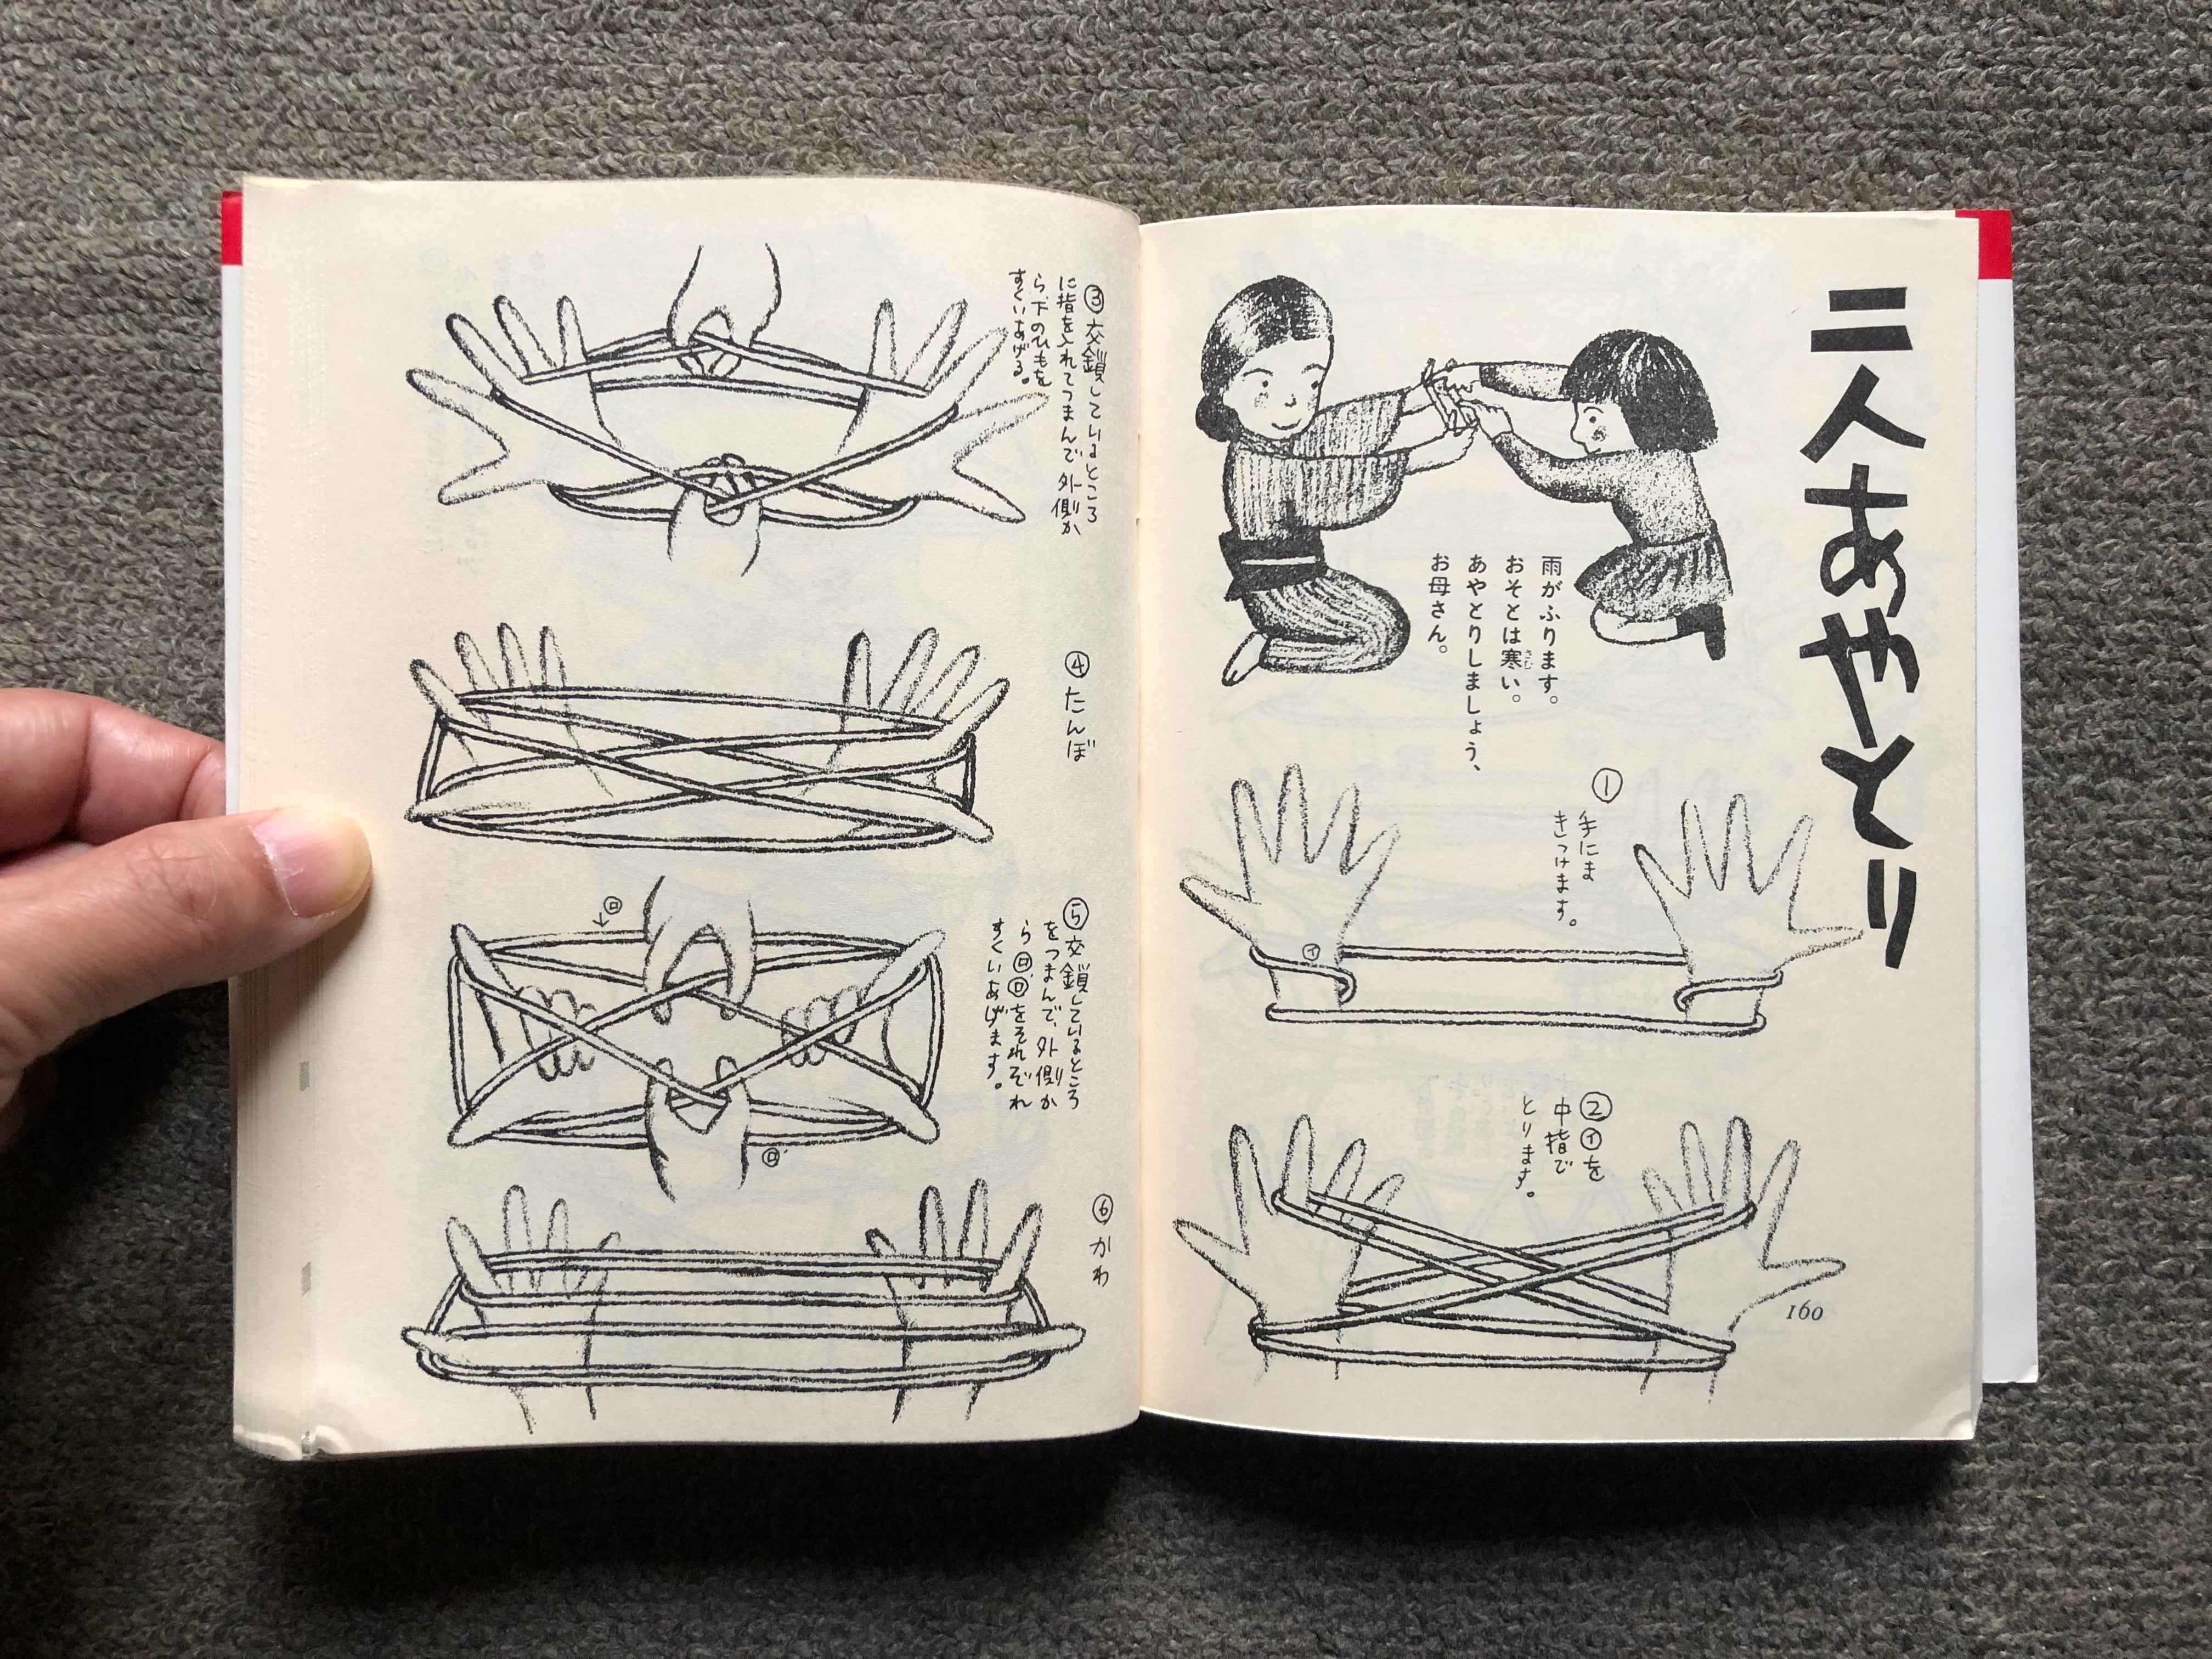 二人あやとり
雨がふります。
おそとは寒い。
さむ
あやとりしましょう、
お母さん。
①
手にま
きつけます。
イ
②㋑を
中指で
とります。
160
③交鎖しているところ
に指を入れてつまんで外側か
ら下のひもを
すくいあげる。
④たんぼ
⑤交鎖しているところ
をつまんで、外側か
らロロ'をそれぞれ
すくいあげます。
ロ
ロ'
⑥かわ